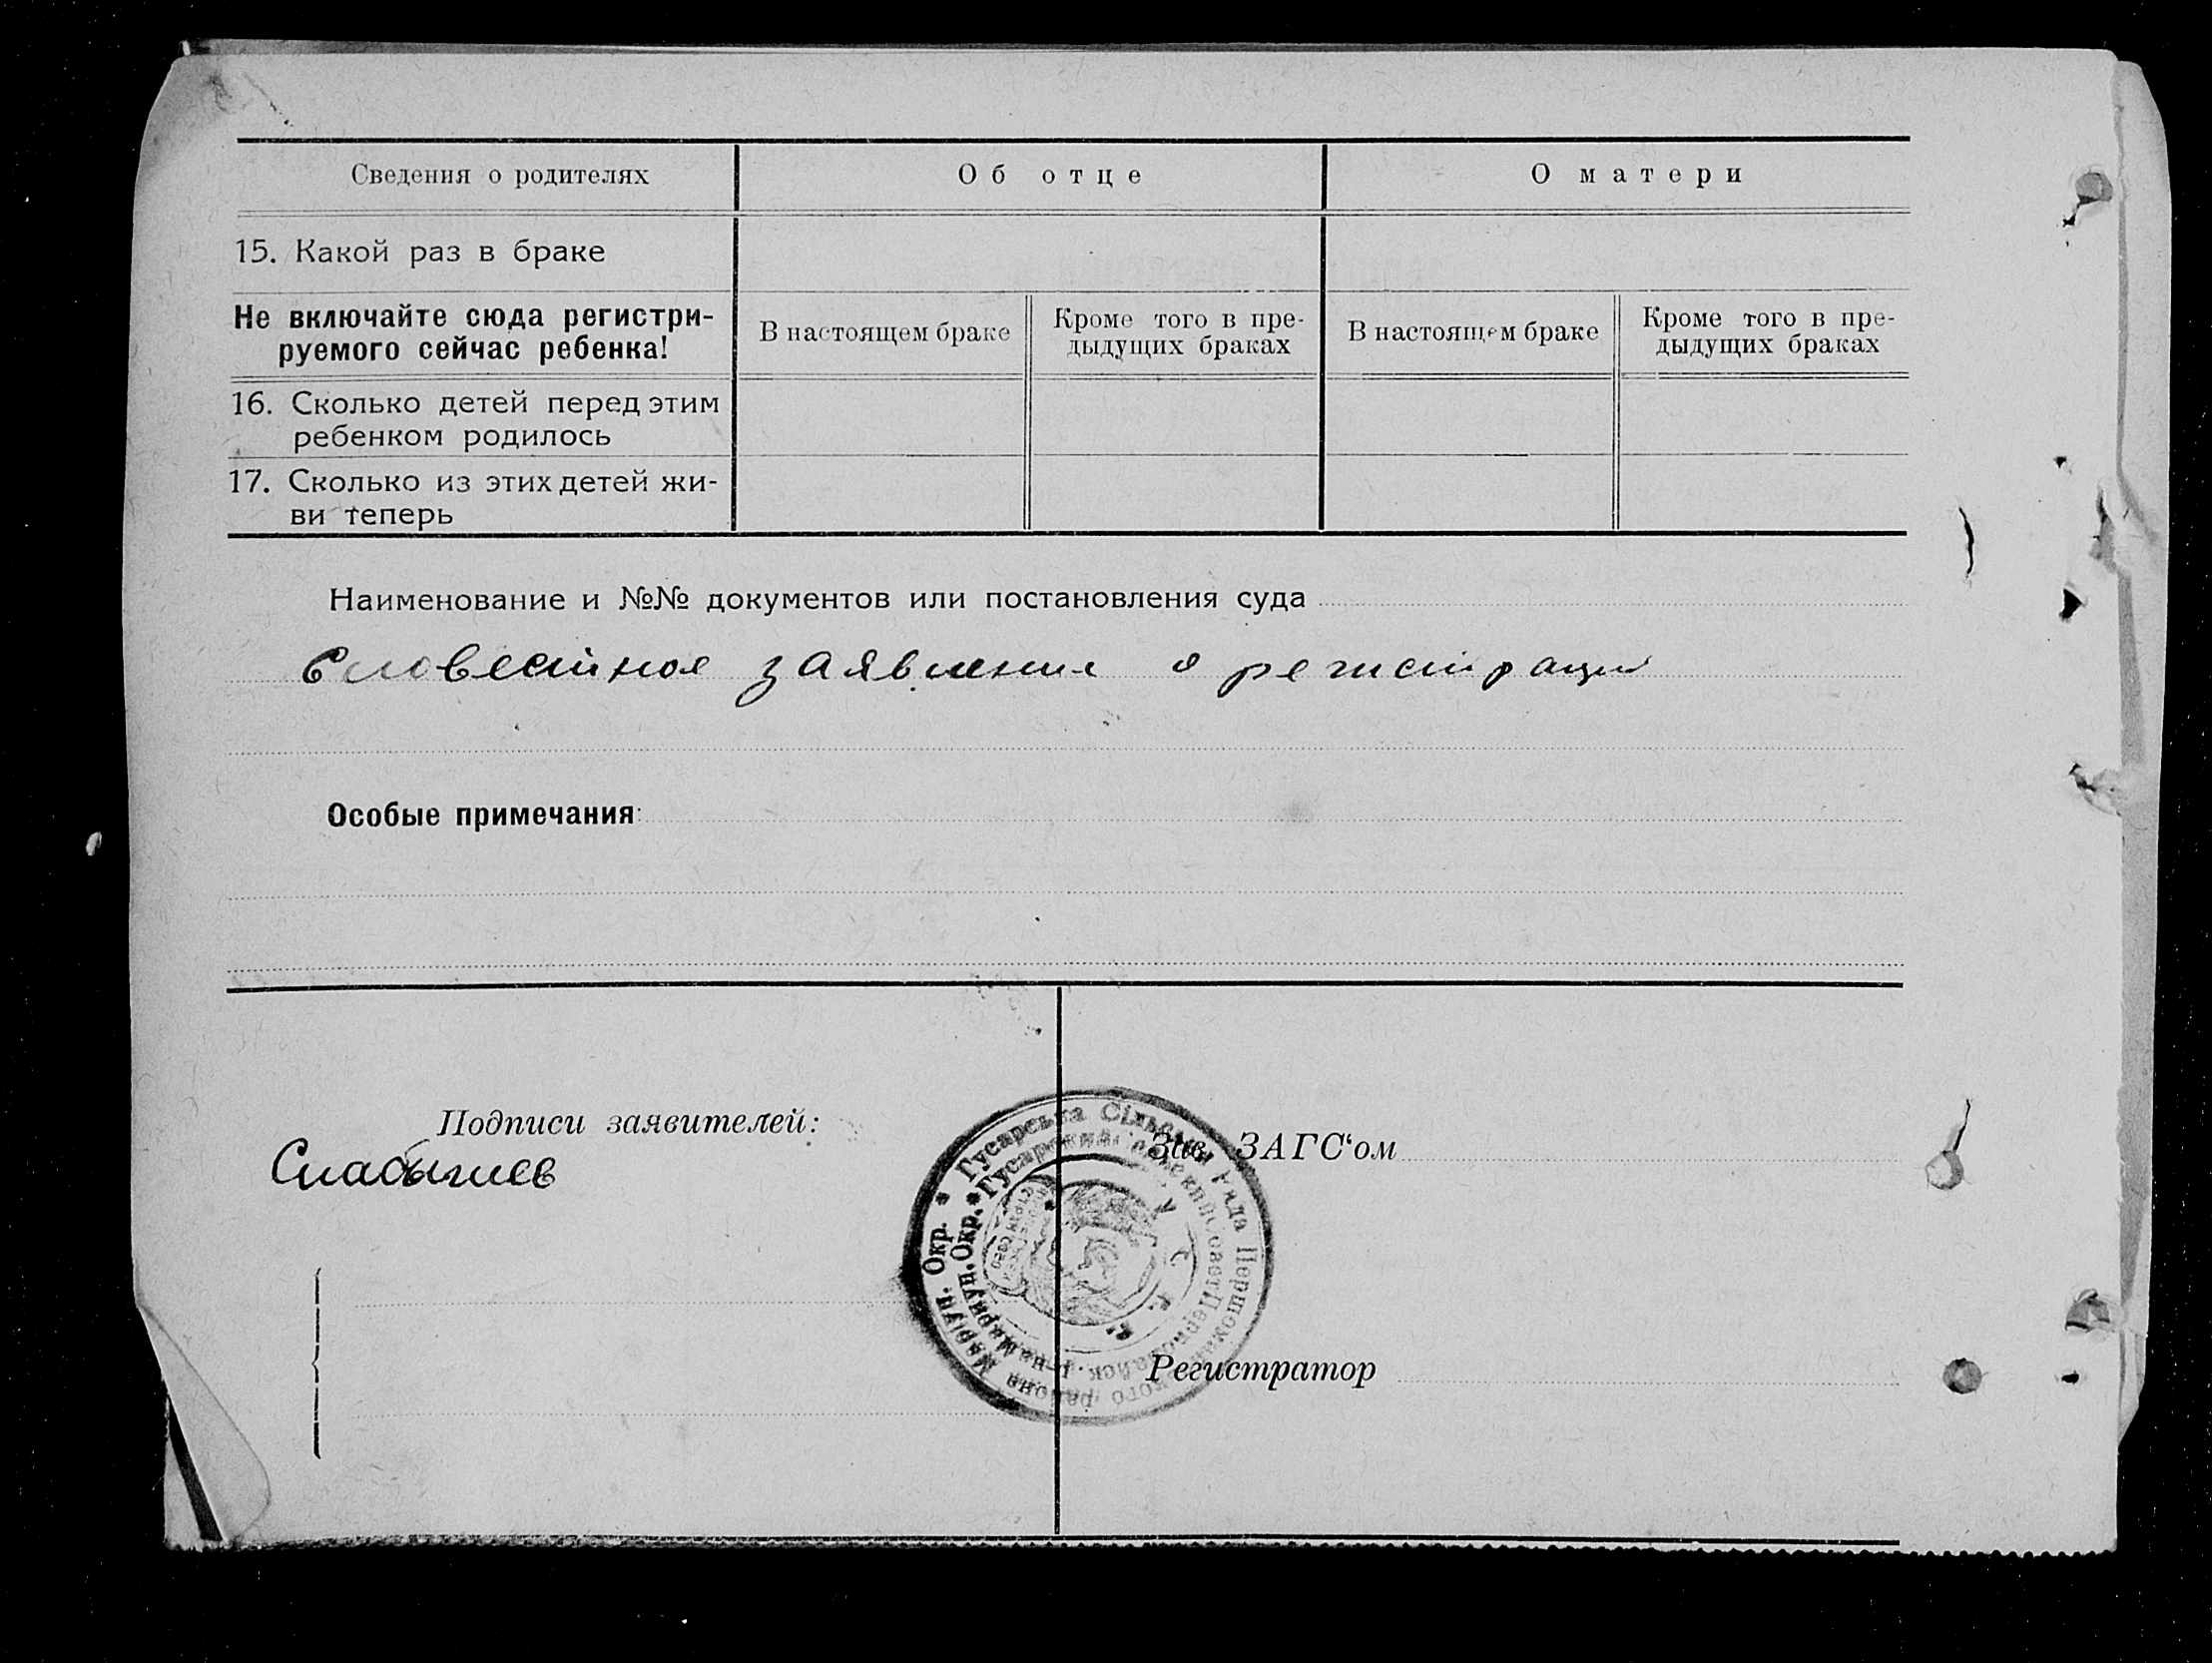 Сведения о родителях
Об отце
О матери
15. Какой раз в браке
Не включайте сюда регистри-
руемого сейчас ребенка!
В настоящем браке
Кроме того в пре-
дыдущих браках
В настоящем браке
Кроме того в пре-
дыдущих браках
16. Сколько детей перед этим
ребенком родилось
17. Сколько из этих детей жи-
ви теперь
Наименование и №№ документов или постановления суда
Словестное заявление о регистрации
Особые примечания:
Подписи заявителей:
Зав. ЗАГС‘ом
Регистратор
Гусарська Сільська Рада Першотравневого района Маріуп. Окр.
Мариуп. Окр.
У. С. С. Р.